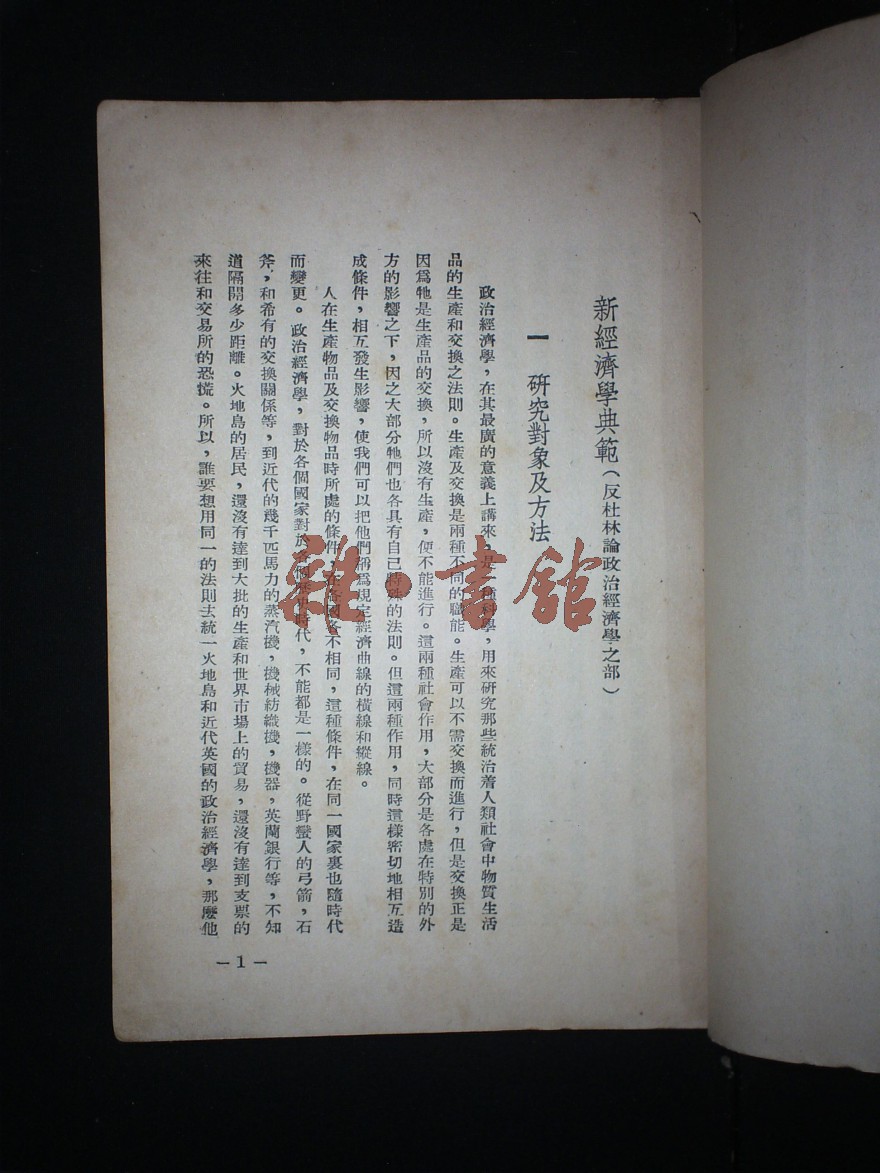 新經濟學典範（反杜林論政治經濟學之部）
一　研究對象及方法
政治經濟學，在其最廣的意義上講來，是一種科學，用來研究那些統治着人類社會中物質生活
品的生產和交換之法則。生產及交換是兩種不同的職能。生產可以不需交換而進行，但是交換正是
因爲牠是生產品的交換，所以沒有生產，便不能進行。這兩種社會作用，大部分是各處在特別的外
方的影響之下，因之大部分牠們也各具有自己特殊的法則。但這兩種作用，同時這樣密切地相互造
成條件，相互發生影響，使我們可以把他們稱爲規定經濟曲線的橫線和縱線。
人在生產物品及交換物品時所處的條件，在各國各不相同，這種條件，在同一國家裏也隨時代
而變更。政治經濟學，對於各個國家對於各個歷史時代，不能都是一樣的。從野蠻人的弓箭，石
斧，和希有的交換關係等，到近代的幾千匹馬力的蒸汽機，機械紡織機，機器，英蘭銀行等，不知
道隔開多少距離。火地島的居民，還沒有達到大批的生產和世界市場上的貿易，還沒有達到支票的
來往和交易所的恐慌。所以，誰要想用同一的法則去統一火地島和近代英國的政治經濟學，那麼他
—1—
雜·書館